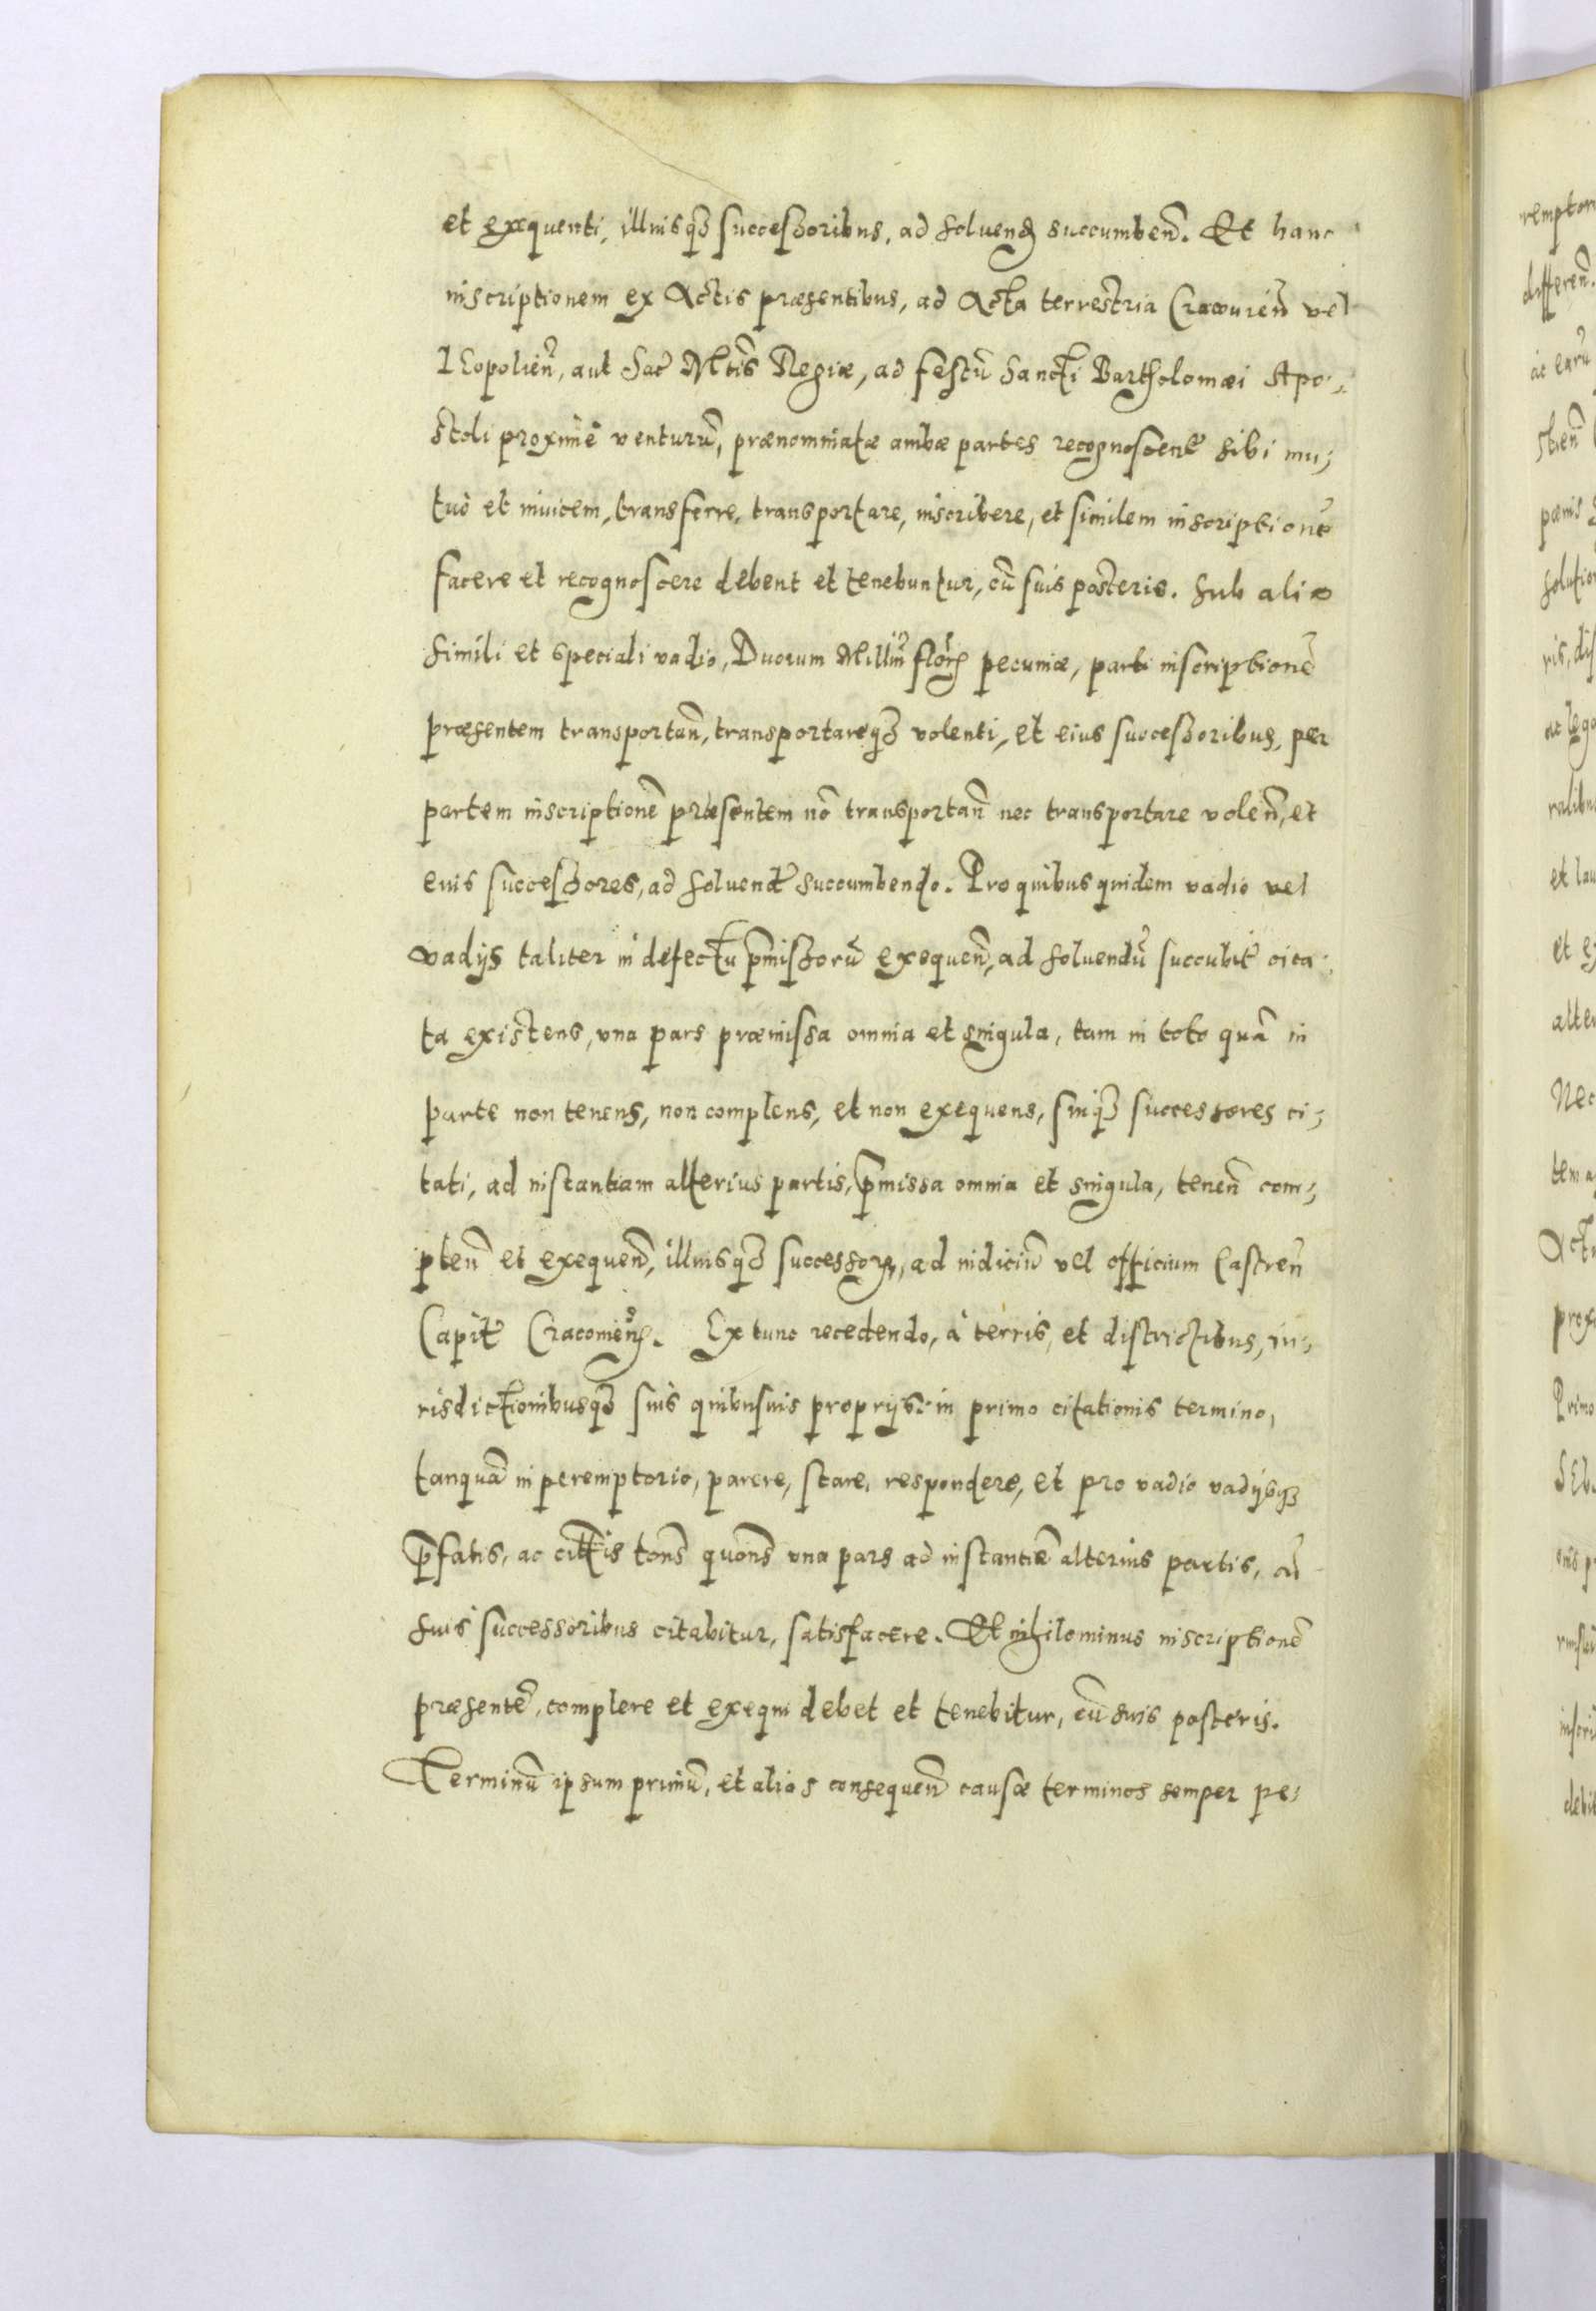 et exequenti, illiusq3 successoribus, ad soluend succumben. Et hanc
inscriptionem ex Actis præsentibus, ad Acta terrestria Cracouien vel
Leopolien, aut Sac Mtis Regiæ, ad festū Sancti Bartholomæi Apo-
stoli proximè venturū, prænominatæ ambæ partes recognoscentes sibi mu-
tuò et inuicem, transferre, transportare, inscribere, et similem inscriptionē
facere et recognoscere debent et tenebuntur, cū suis posteris. Sub alio
simili et speciali vadio, Duorum Milliū flor pecuniæ, parti inscriptionē
præsentem transportan, transportareq3 volenti, et eius successoribus, per
partem inscriptionē præsentem nō transportan nec transportare volen, et
eius successores, ad soluend succumbendo. Pro quibus quidem vadio vel
vadijs taliter in defectu pmissorū exequen, ad soluendū succubit cita-
ta existens, vna pars præmissa omnia et singula, tam in toto quā in
parte non tenens, non complens, et non exequens, suiq3 successores ci-
tati, ad instantiam alterius partis, pmissa omnia et singula, tenen com-
plen et exequen, illiusq3 successor, ad iudiciū vel officium Castren
Capit Cracouien. Ex tunc recedendo, à terris, et districtibus, iu-
risdictionibusq3 suis quibusuis proprijs: in primo citationis termino,
tanquā in peremptorio, parere, stare, respondere, et pro vadio vadijsq3
pfatis, ac tons quons vna pars ad instantiā alterius partis, cū
suis successoribus citabitur, satisfacere. Et nihilominus inscriptionē
præsentē, complere et exequi debet et tenebitur, cū suis posteris.
Terminū ipsum primū, et alios consequen causæ terminos semper pe-